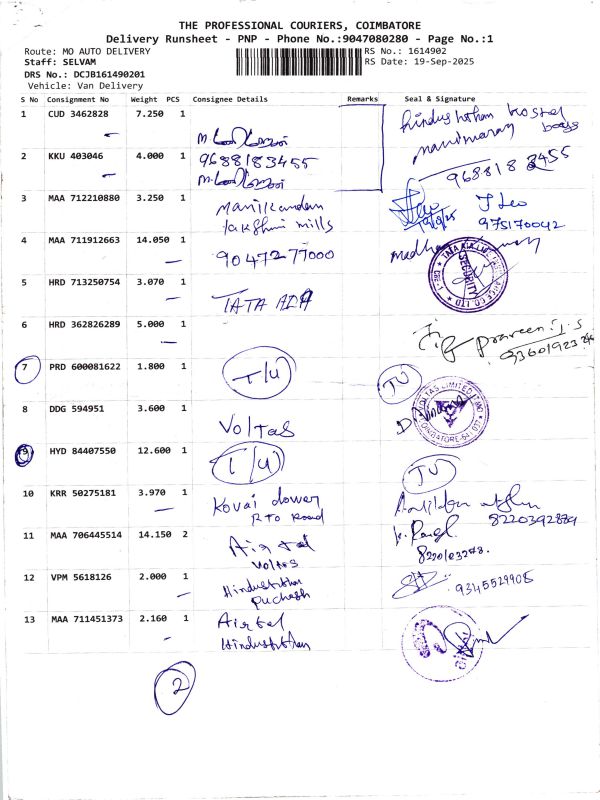 THE PROFESSIONAL COURIERS, COIMBATORE
Delivery Runsheet - PNP - Phone No.:9047080280 - Page No.:1
Route: MO AUTO DELIVERY
RS No.: 1614902
Staff: SELVAM
RS Date: 19-Sep-2025
DRS No.: DCJB161490201
Vehicle: Van Delivery
S No Consignment No Weight PCS Consignee Details Remarks Seal & Signature
1 CUD 3462828 7.250 1
hindusthan hostel
boys
2 KKU 403046 4.000 1 9688183455
968818 3455
3 MAA 712210880 3.250 1 Manikandan
lakshmi mills
J Leo
975170042
4 MAA 711912663 14.050 1
9047277000
SECURITY
5 HRD 713250754 3.070 1
TATA AIA
6 HRD 362826289 5.000 1
Praveen.J.S
7 PRD 600081622 1.800 1 I/U IU
8 DDG 594951 3.600 1
Voltas
9 HYD 84407550 12.600 1 I/U IU
10 KRR 50275181 3.970 1 Kovai
RTO Road
8220392879
11 MAA 706445514 14.150 2 Airtel
Voltas
12 VPM 5618126 2.000 1 Hindusthan
9345529908
13 MAA 711451373 2.160 1 Airtel
Hindusthan
2